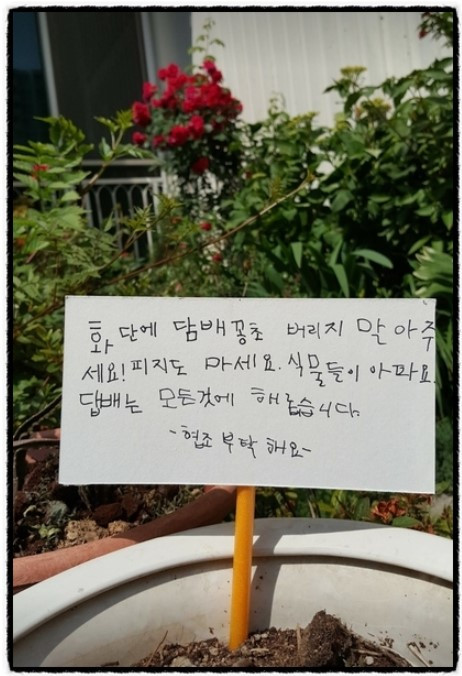 화단에 담배꽁초 버리지 말아주
세요! 피지도 마세요. 식물들이 아파요.
담배는 모든것에 해롭습니다.
-협조 부탁 해요-